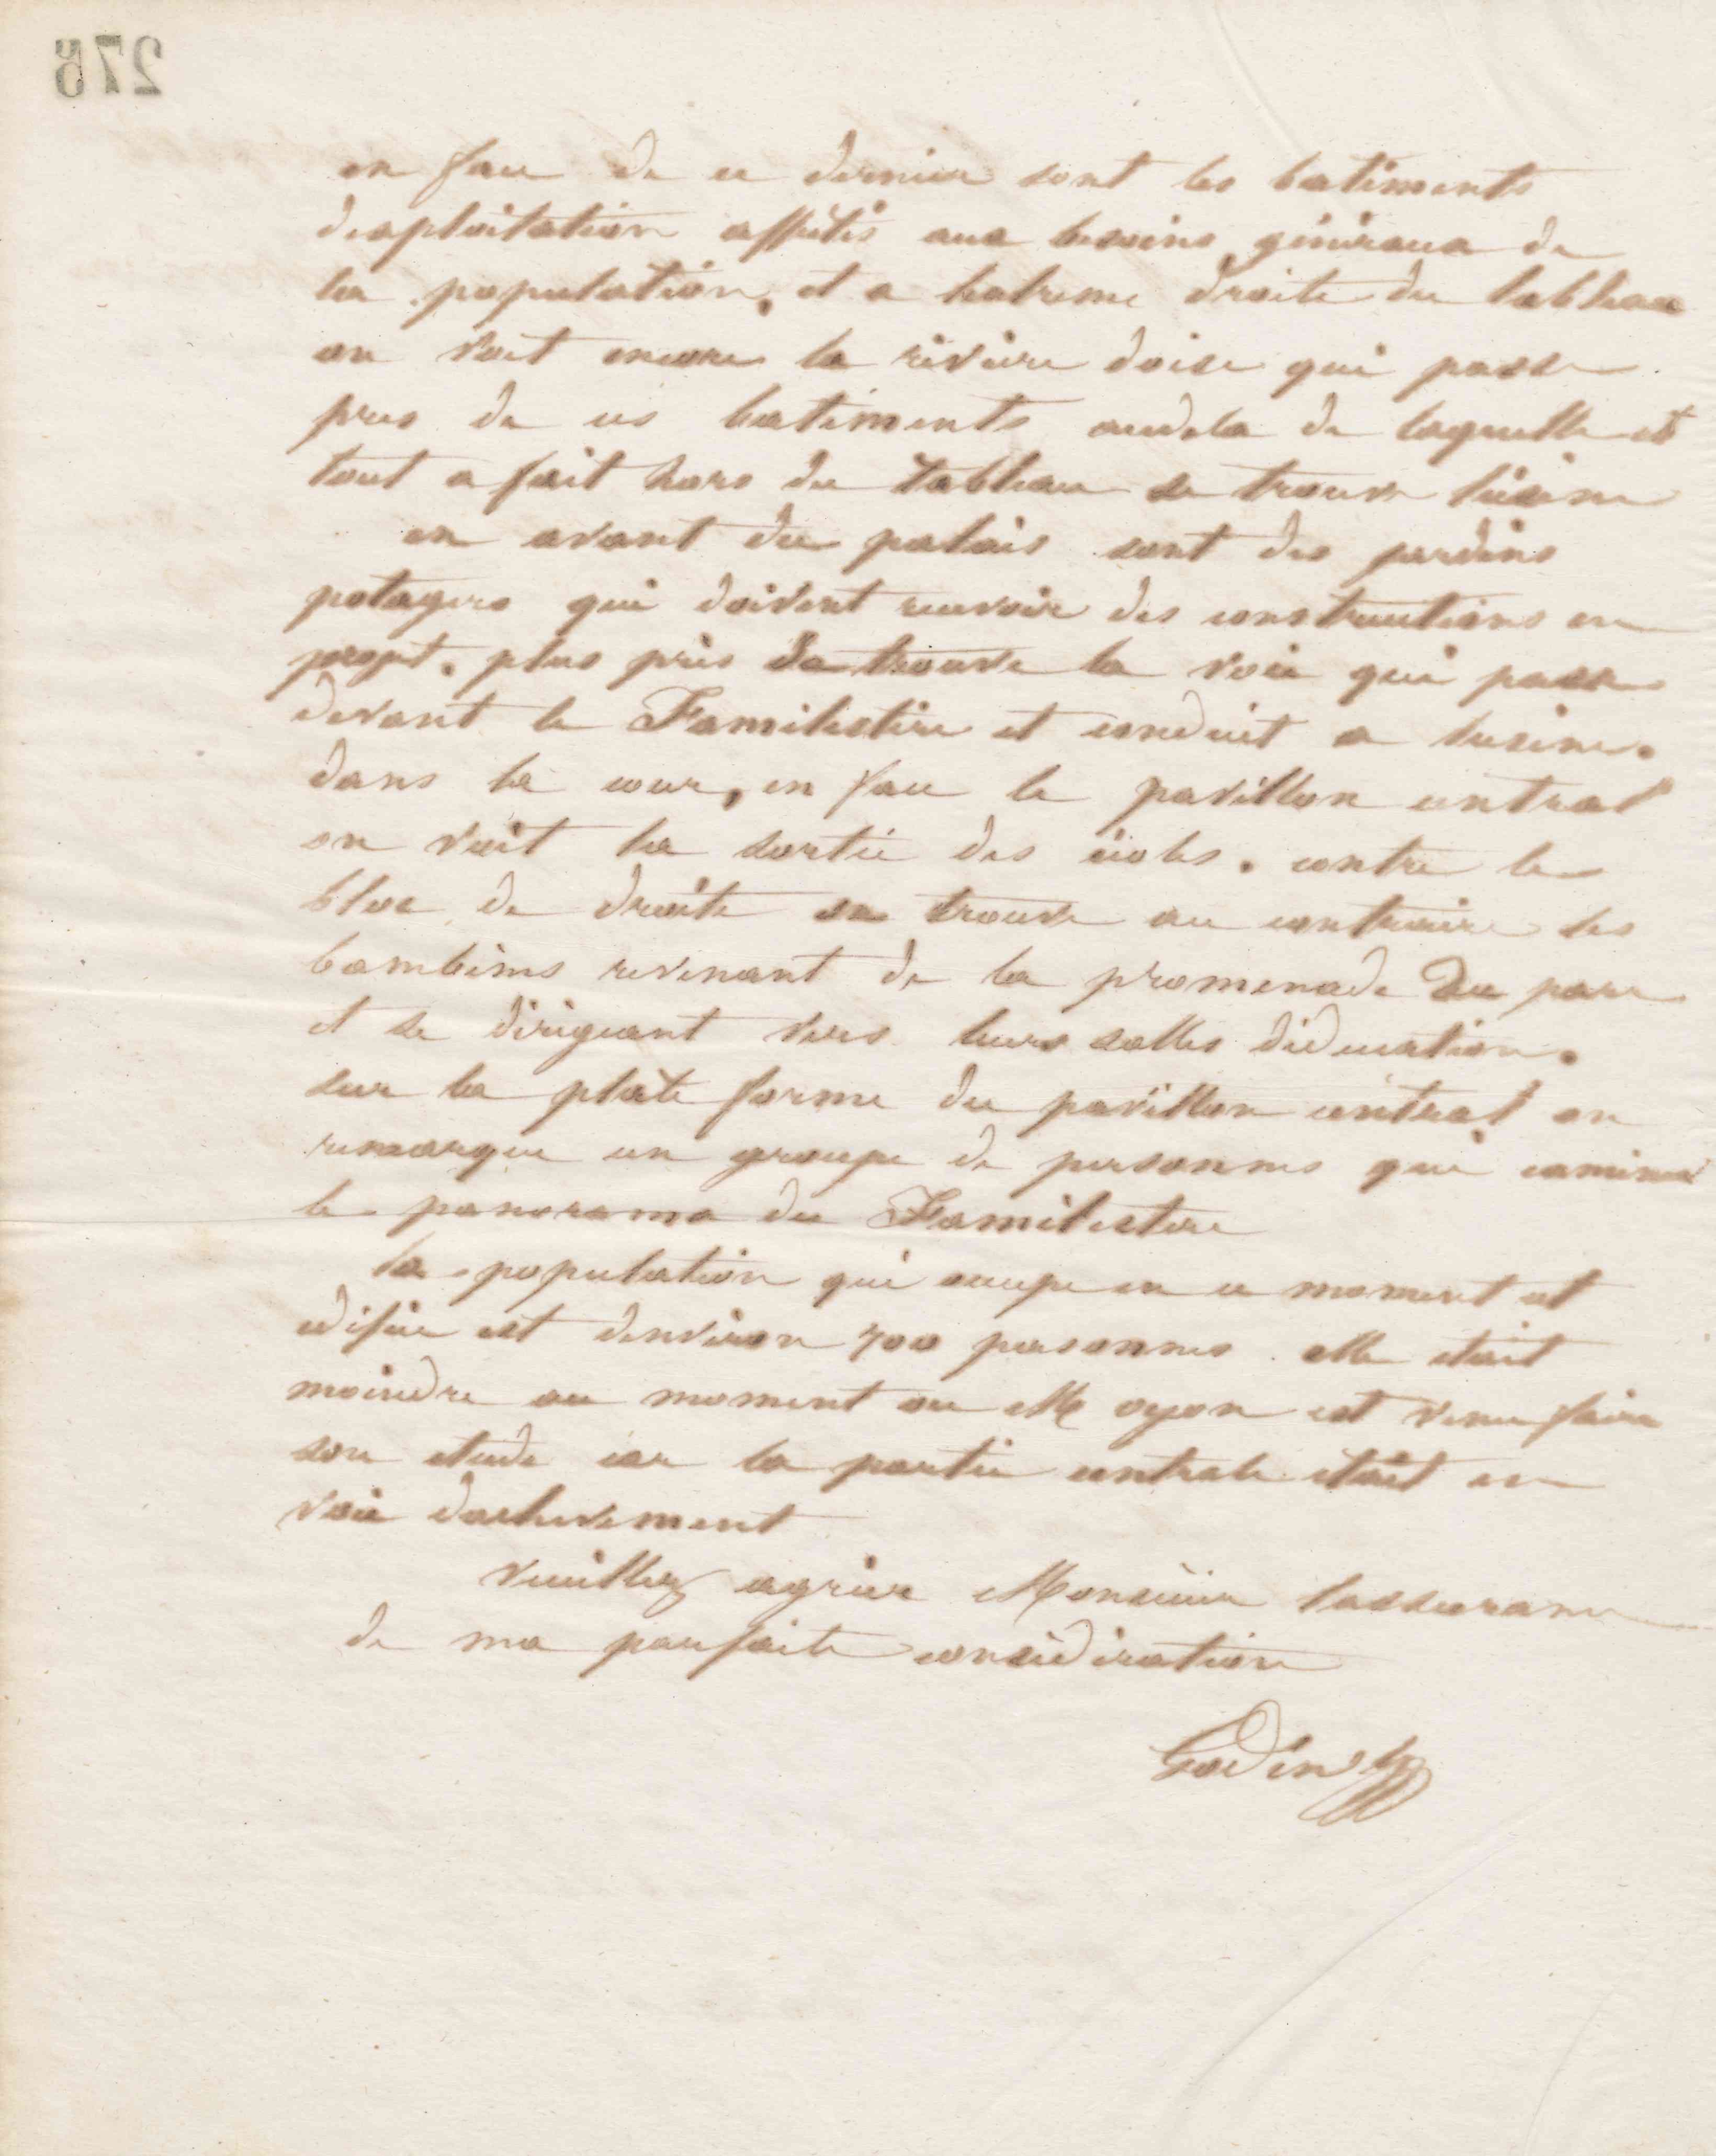 275
en face de ce dernier sont les batiments
dexploitation affectés aux besoins généraux de
la population, et a lextreme droite du tableau
on voit encore la rivière doise qui passe
pres de ces batiments audela de laquelle et
tout a fait hors du tableau se trouve lusine
en avant du palais sont des jardins
potagers qui doivent recevoir des constructions en
projet. plus près se trouve la voie qui passe
devant le Familistère et conduit a lusine.
dans la cour, en face le pavillon central
on voit la sortie des écoles. contre le
bloc de droite on trouve au contraire les
bambins revenant de la promenade du parc
et se dirigeant vers leurs salles déducation.
sur la plate forme du pavillon central on
remarque un groupe de personnes qui examine
le panorama du Familistere
la population qui occupe en ce moment cet
edifice est denviron 700 personnes. elle etait
moindre au moment ou M oyon est venu faire
son etude car la partie centrale était en
voie dachevement
veuillez agréer Monsieur lassurance
de ma parfaite considération
Godin